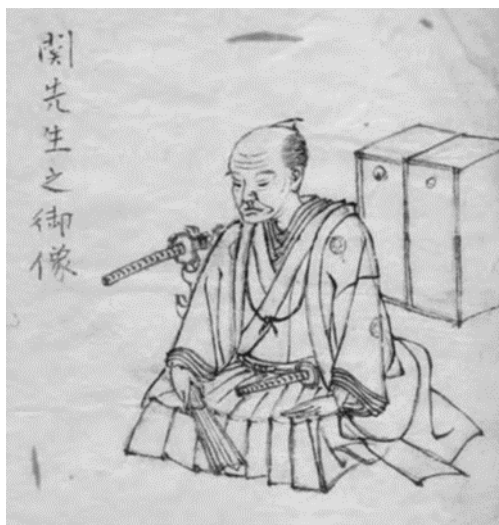 関先生之御像